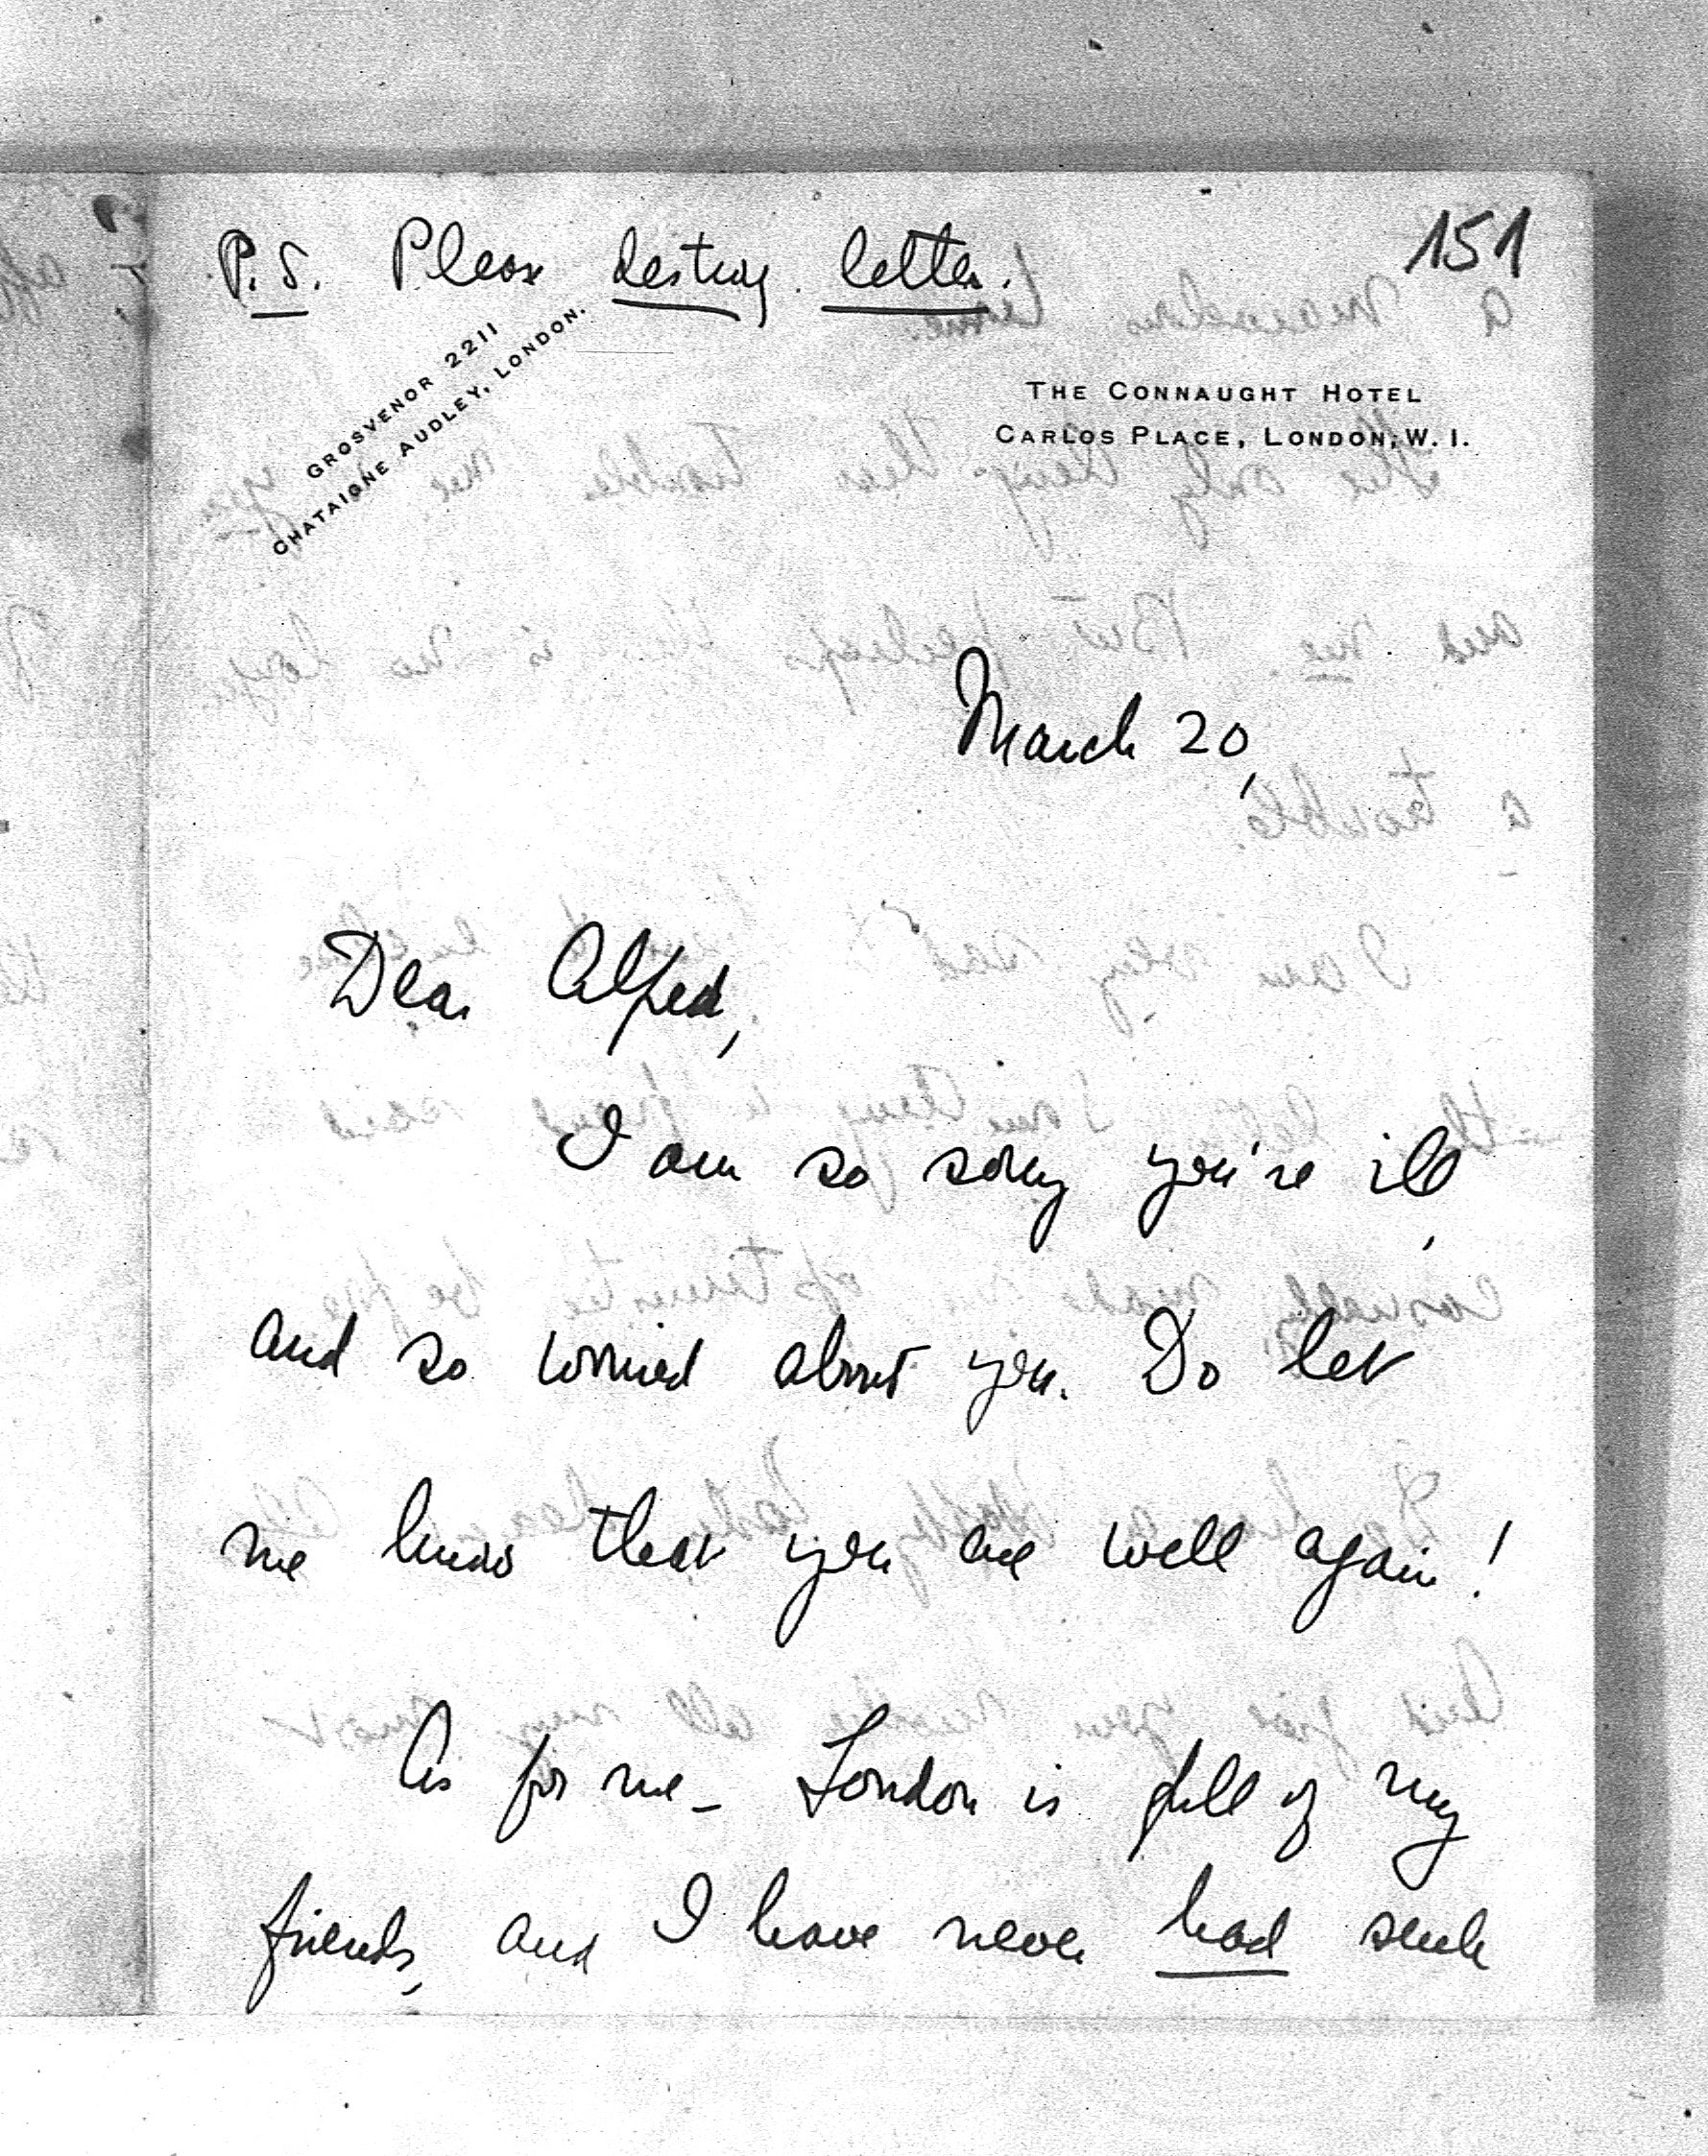 P.S. Please destroy letter.
151
GROSVENOR 2211
CHATAIGNE AUDLEY, LONDON.
THE CONNAUGHT HOTEL
CARLOS PLACE, LONDON, W. 1.
March 20,
Dear Alfred,
I am so sorry you're ill,
and so worried about you. Do let
me know that you are well again!
As for me – London is full of my
friends, and I have never had such